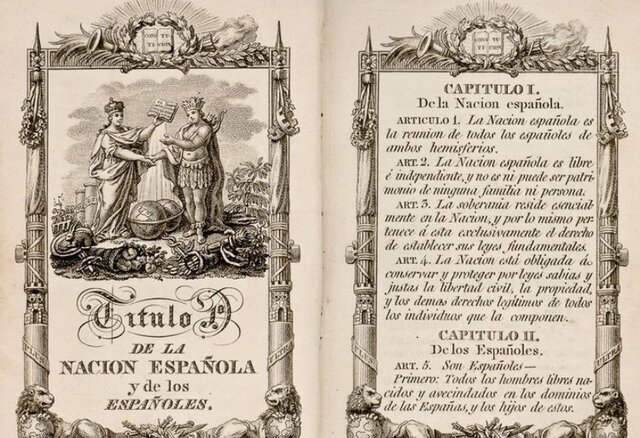 CONS TI
TU CION
Titulo 1º
DE LA
NACION ESPAÑOLA
y de los
ESPAÑOLES.
CONS TI
TU CION
CAPITULO I.
De la Nacion española.
ARTICULO 1. La Nacion española es
la reunion de todos los españoles de
ambos hemisferios.
ART. 2. La Nacion española es libre
é independiente, y no es ni puede ser patri-
monio de ninguna familia ni persona.
ART. 3. La soberania reside esencial-
mente en la Nacion, y por lo mismo per-
tenece á esta exclusivamente el derecho
de establecer sus leyes fundamentales.
ART. 4. La Nacion está obligada á
conservar y proteger por leyes sabias y
justas la libertad civil, la propiedad,
y los demas derechos legitimos de todos
los individuos que la componen.
CAPITULO II.
De los Españoles.
ART. 5. Son Españoles—
Primero: Todos los hombres libres na-
cidos y avecindados en los dominios
de las Españas, y los hijos de estos.